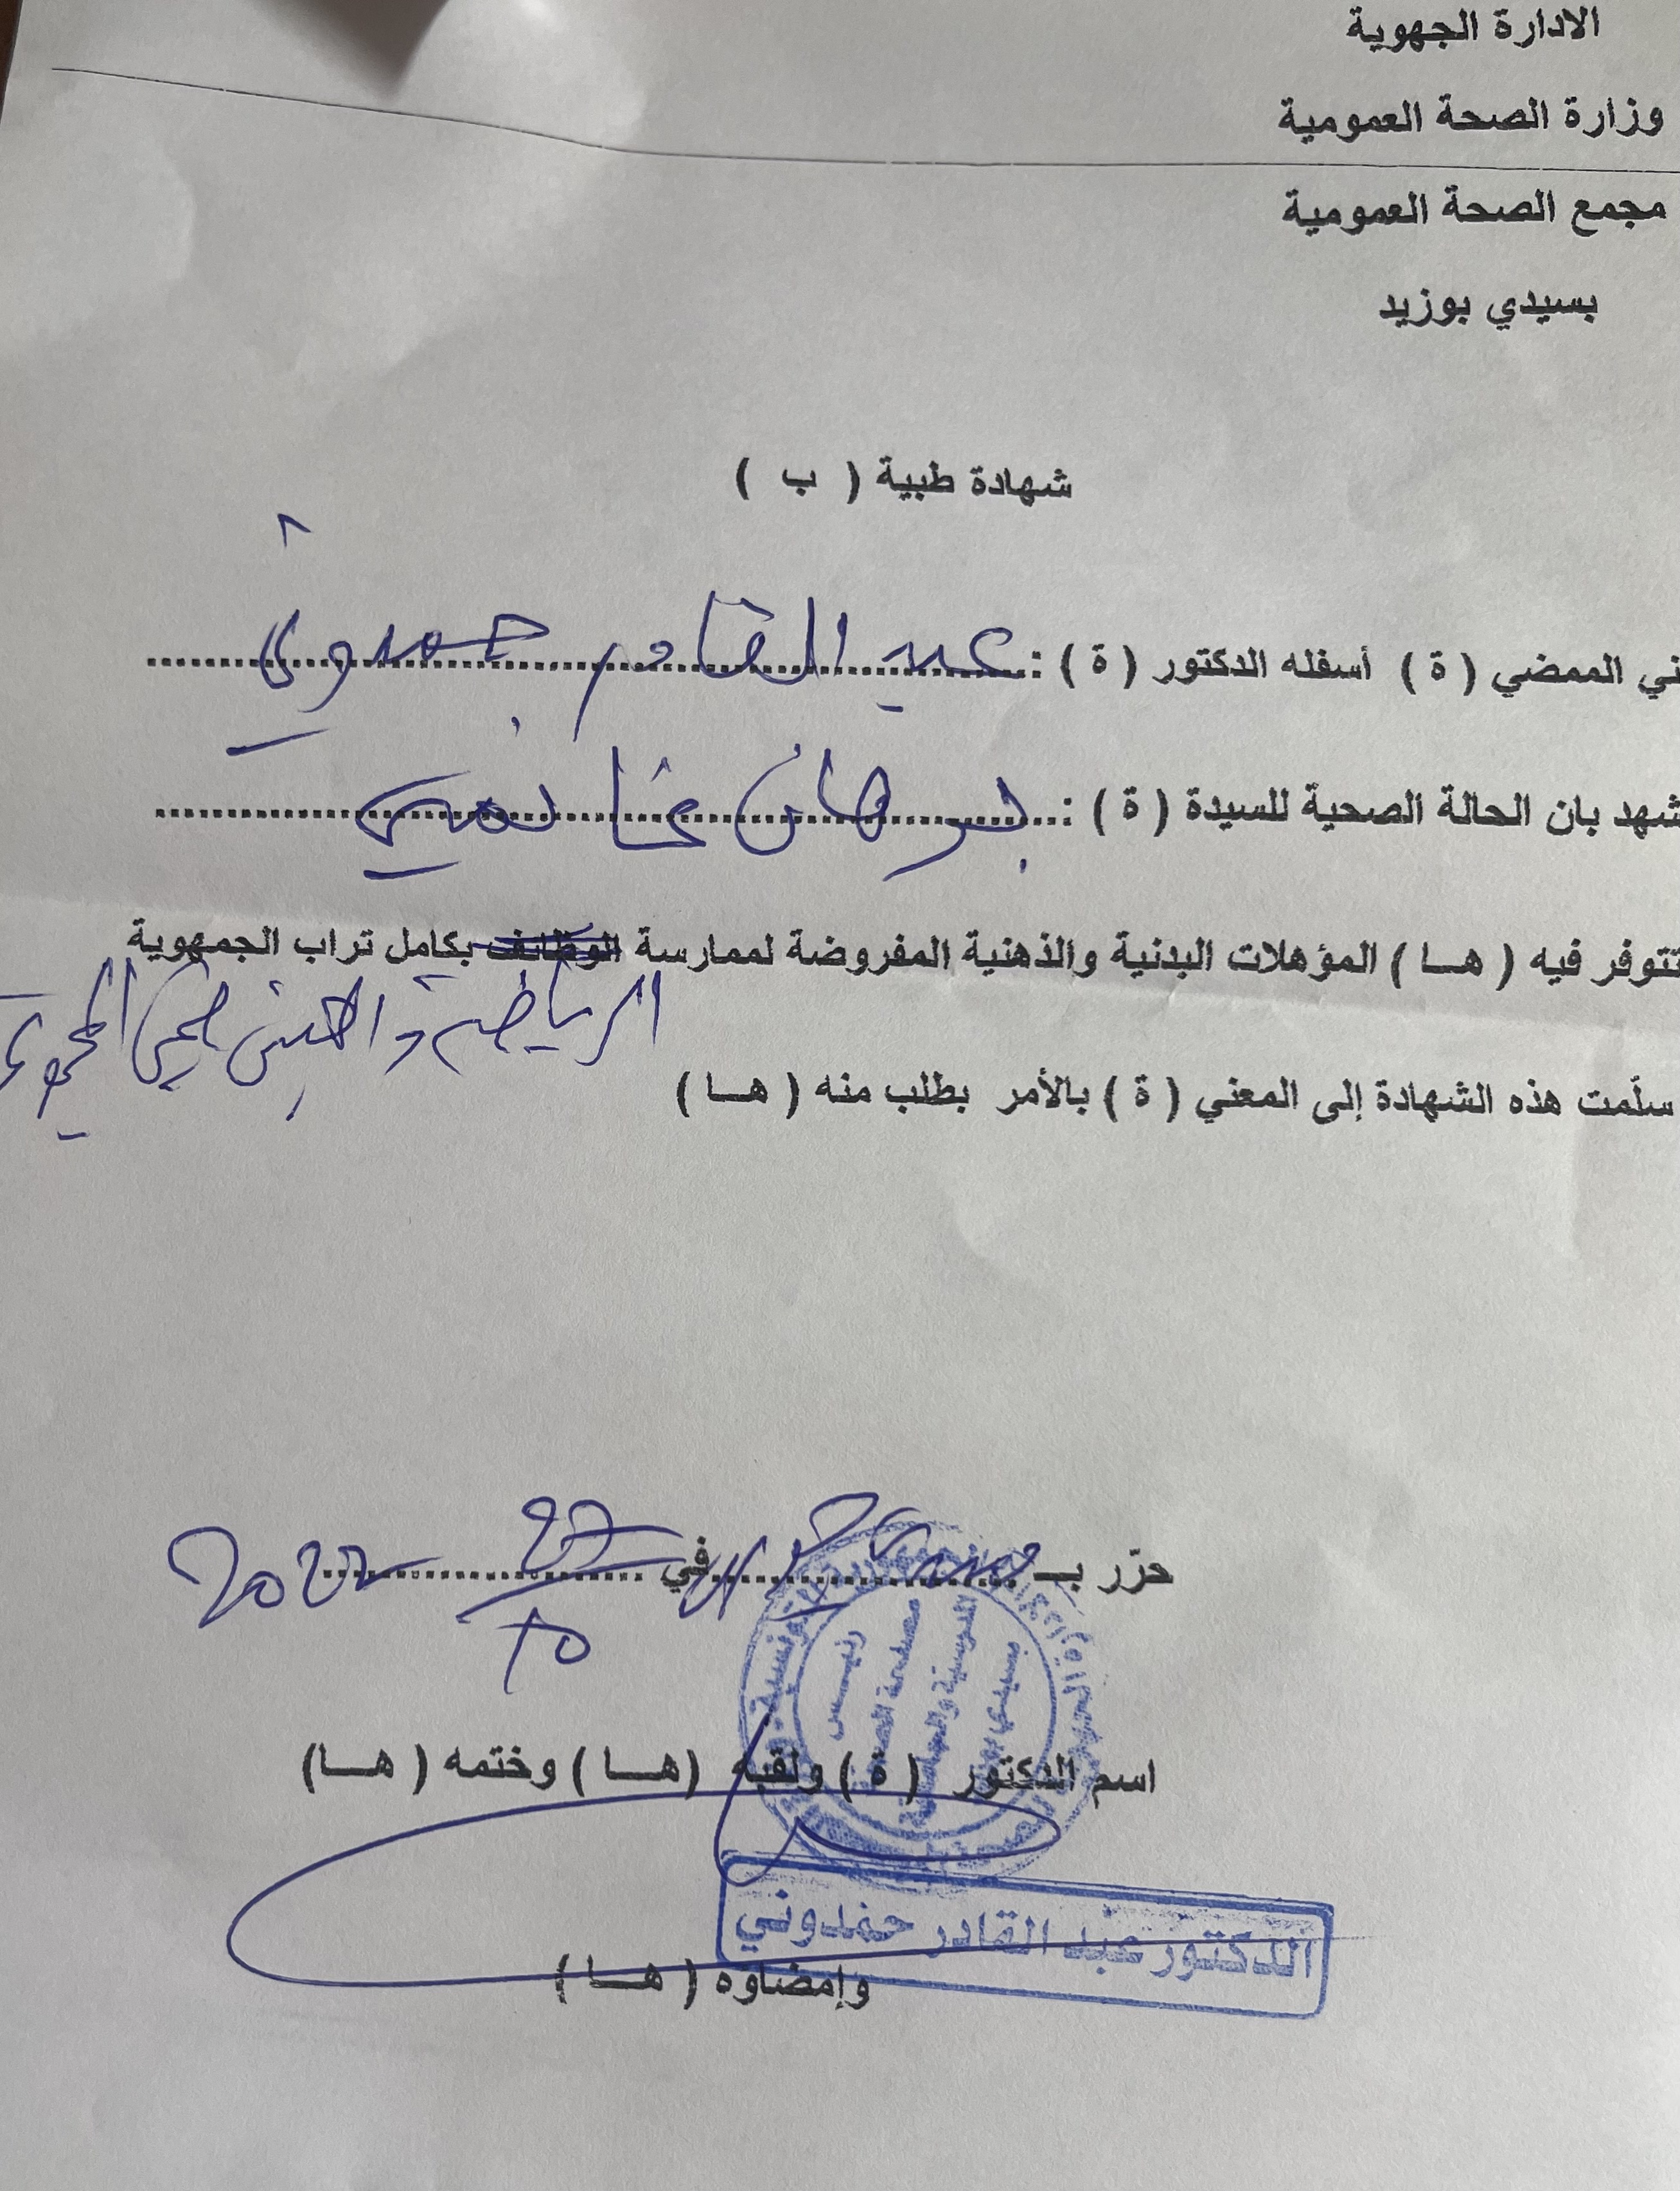 الادارة الجهوية
وزارة الصحة العمومية
مجمع الصحة العمومية
بسيدي بوزيد
شهادة طبية ( ب )
ني الممضي ( ة ) أسفله الدكتور ( ة ) : عبد القادر حمدوني
شهد بان الحالة الصحية للسيدة ( ة ) : برهان غانمي
تتوفر فيه ( هـا ) المؤهلات البدنية والذهنية المفروضة لممارسة الوظائف بكامل تراب الجمهورية
الرياضة و
سلّمت هذه الشهادة إلى المعني ( ة ) بالأمر بطلب منه ( هـا )
حرّر بـ في 27/10 2022
رئيس
مصلحة
المدرسية والجامعية
بسيدي
اسم الدكتور ( ة ) ولقبه (هـا ) وختمه ( هـا)
الدكتور عبد القادر حمدوني
وإمضاوه ( هـا )